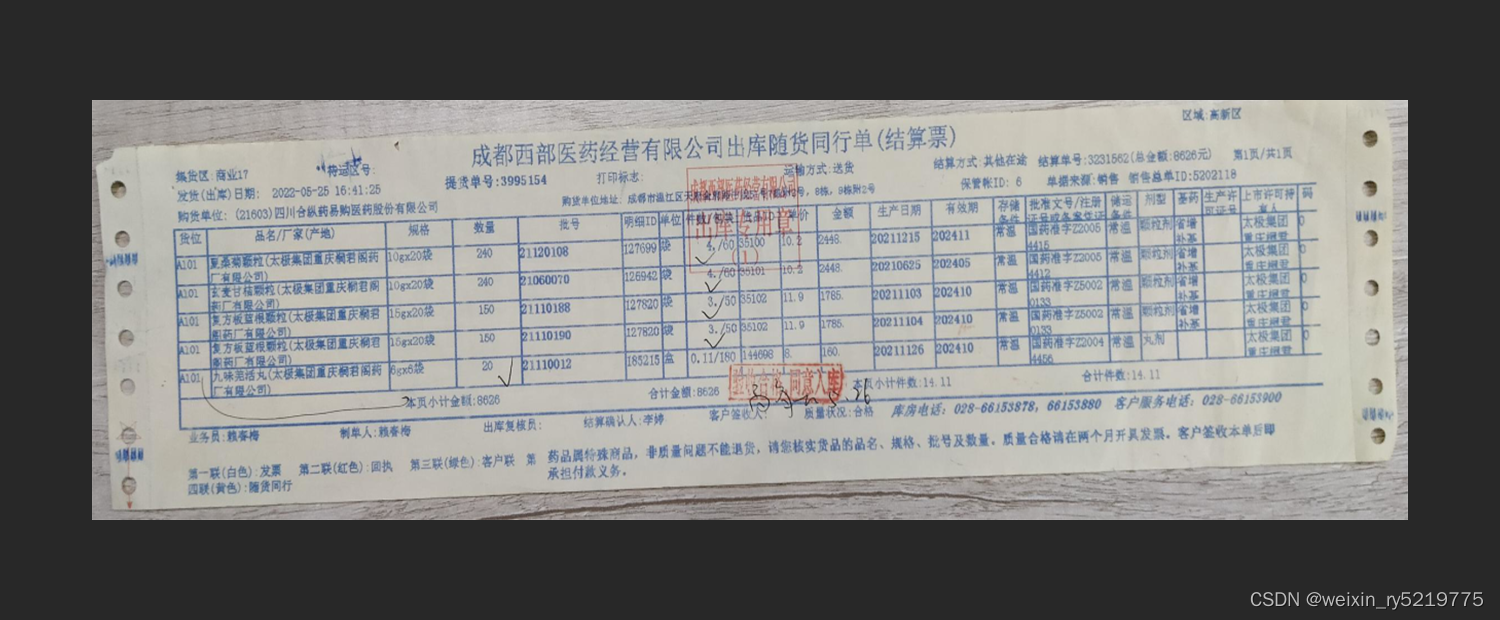 区域:高新区
成都西部医药经营有限公司出库随货同行单(结算票)
集货区:商业17 转运区号:
发货(出库)日期: 2022-05-25 16:41:25 提货单号:3995154 打印标志: 运输方式:送货 结算方式:其他在途 结算单号:3231562(总金额:8626元) 第1页/共1页
购货单位: (21603)四川合纵药易购医药股份有限公司 购货单位地址: 成都市温江区 保管帐ID: 6 单据来源:销售 销售总单ID:5202118
成都西部医药经营有限公司
出库专用章
(1)
货位 品名/厂家(产地) 规格 数量 批号 明细ID 单位 件数/包装 单价 金额 生产日期 有效期 存储条件 批准文号/注册 储运条件 剂型 基药 生产许可证号 上市许可持有人 码
A101 夏桑菊颗粒(太极集团重庆桐君阁药厂有限公司) 10gx20袋 240 21120108 127699 袋 4./60 35100 10.2 2448. 20211215 202411 常温 国药准字Z20054415 常温 颗粒剂 省增补基 太极集团重庆桐君 0
A101 玄麦甘桔颗粒(太极集团重庆桐君阁药厂有限公司) 10gx20袋 240 21060070 126942 袋 4./60 35101 10.2 2448. 20210625 202405 常温 国药准字Z20054412 常温 颗粒剂 省增补基 太极集团重庆桐君 0
A101 复方板蓝根颗粒(太极集团重庆桐君阁药厂有限公司) 15gx20袋 150 21110188 127820 袋 3./50 35102 11.9 1785. 20211103 202410 常温 国药准字Z50020133 常温 颗粒剂 省增补基 太极集团重庆桐君 0
A101 复方板蓝根颗粒(太极集团重庆桐君阁药厂有限公司) 15gx20袋 150 21110190 127820 袋 3./50 35102 11.9 1785. 20211104 202410 常温 国药准字Z50020133 常温 颗粒剂 省增补基 太极集团重庆桐君 0
A101 九味羌活丸(太极集团重庆桐君阁药厂有限公司) 6gx6袋 20 21110012 185215 盒 0.11/180 144698 8. 160. 20211126 202410 常温 国药准字Z20044456 常温 丸剂 太极集团重庆桐君 0
本页小计金额:8626 合计金额:8626 本页小计件数:14.11 合计件数:14.11
验收合格 同意入库
业务员:赖春梅 制单人:赖春梅 出库复核员: 结算确认人:李婷 客户签收人: 质量状况:合格 库房电话: 028-66153878, 66153880 客户服务电话: 028-66153900
第一联(白色):发票 第二联(红色):回执 第三联(绿色):客户联 第四联(黄色):随货同行
药品属特殊商品, 非质量问题不能退货, 请您核实货品的品名、规格、批号及数量。质量合格请在两个月开具发票。客户签收本单后即承担付款义务。
CSDN @weixin_ry5219775